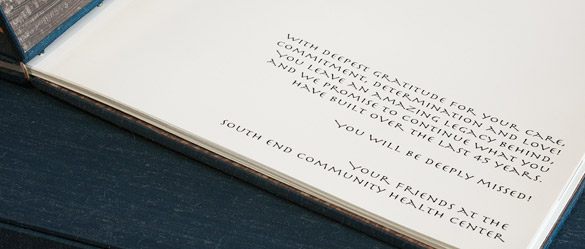 WITH DEEPEST GRATITUDE FOR YOUR CARE,
COMMITMENT, DETERMINATION AND LOVE!
YOU LEAVE AN AMAZING LEGACY BEHIND,
AND WE PROMISE TO CONTINUE WHAT YOU
HAVE BUILT OVER THE LAST 45 YEARS.
YOU WILL BE DEEPLY MISSED!
YOUR FRIENDS AT THE
SOUTH END COMMUNITY HEALTH CENTER